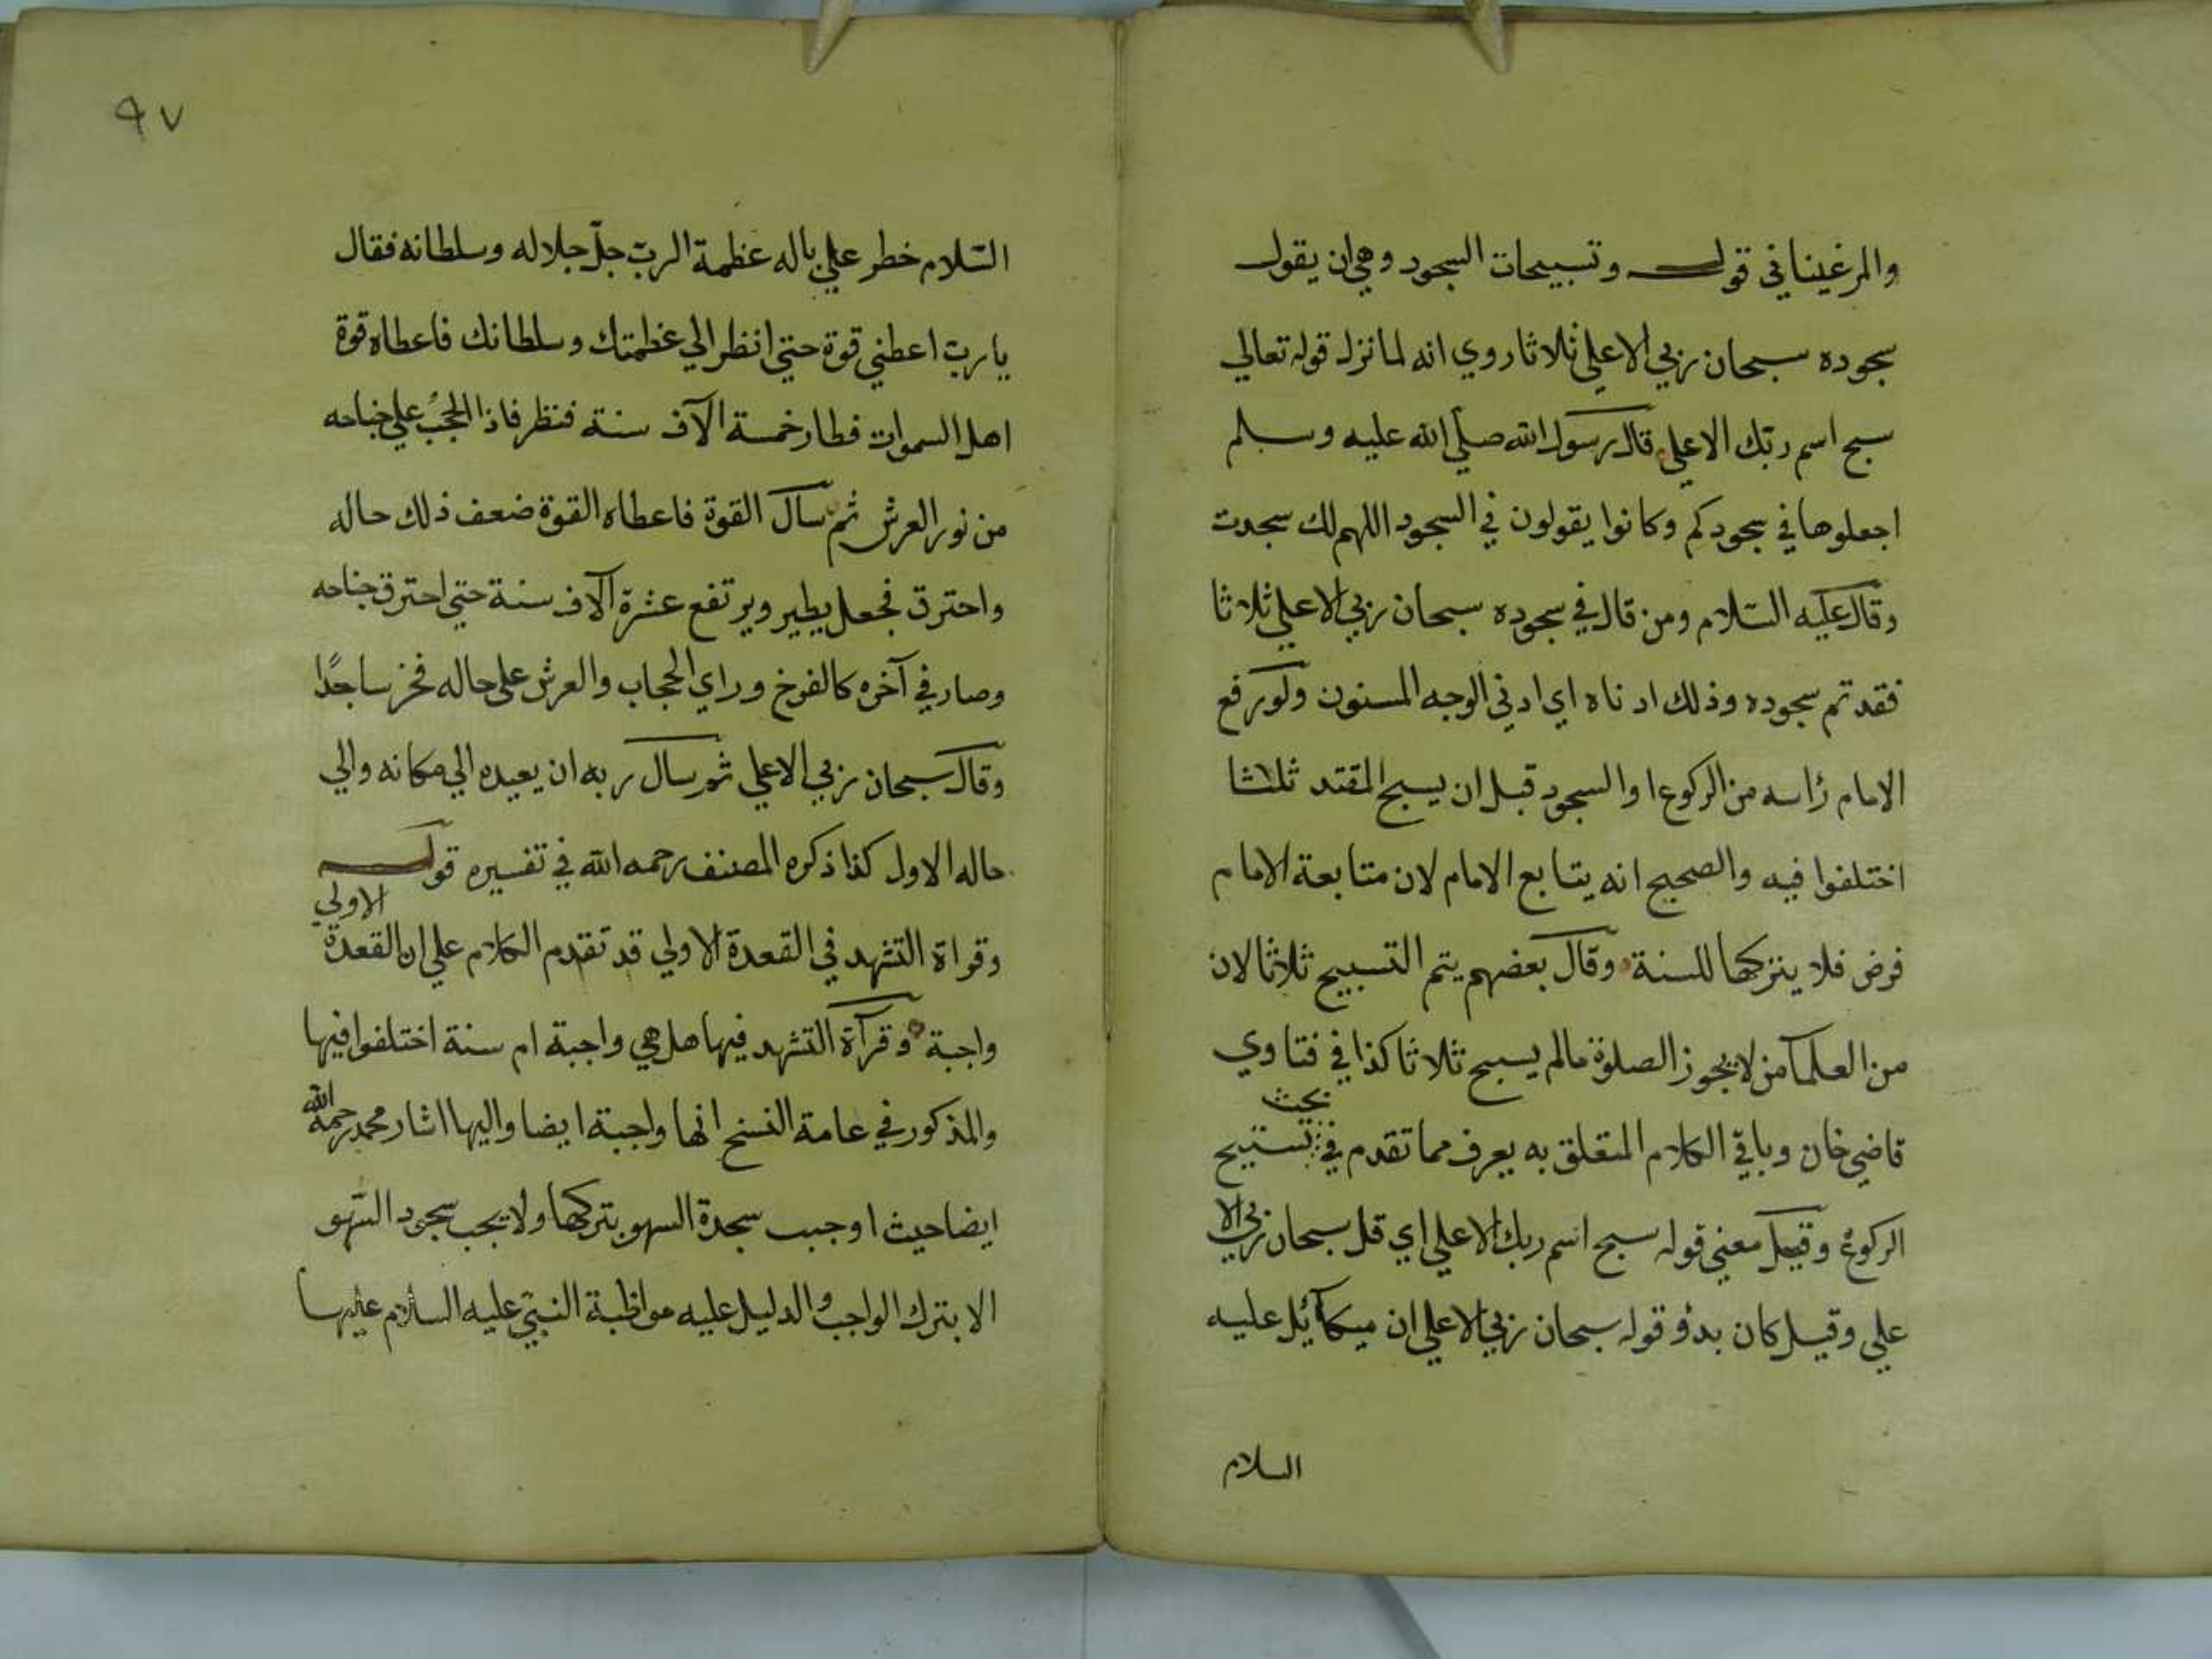 والمرغيناني قوله وتسبيحات السجود وهي ان يقول
سجوده سبحان ربي الاعلي ثلاثا روي انه لما نزل قوله تعالي
سبح اسم ربك الاعلي قال رسول الله صلي الله عليه وسلم
اجعلوها في سجودكم وكانوا يقولون في السجود اللهم لك سجدت
وقال عليه السلام ومن قال في سجوده سبحان ربي الاعلي ثلاثا
فقد تم سجوده وذلك ادناه اي ادني الوجه المسنون ولو رفع
الامام رأسه من الركوع او السجود قبل ان يسبح المقتد ثلثا
اختلفوا فيه والصحيح انه يتابع الامام لان متابعة الامام
فرض فلا يتركها للسنة وقال بعضهم يتم التسبيح ثلاثا لان
من العلمآ من لا يجوز الصلوة مالم يسبح ثلاثا كذا في فتاوي
بحث
قاضي خان وباقي الكلام المتعلق به يعرف مما تقدم في تسبيح
الركوع وقيل معني قوله سبح اسم ربك الاعلي اي قل سبحان ربي الا
علي وقيل كان بدؤ قوله سبحان ربي الاعلي ان ميكآئيل عليه
السلام
٩٧
السّلام خطر علي باله عظمة الربّ جلّ جلاله وسلطانه فقال
يا ربّ اعطني قوة حتي انظر الي عظمتك وسلطانك فاعطاه قوة
اهل السموات فطار خمسة آلاف سنة فنظر فاذا الحجبُ علي جناحه
من نور العرش ثم سال القوة فاعطاه القوة ضعف ذلك حاله
واحترق فجعل يطير ويرتفع عشرة آلاف سنة حتي احترق جناحه
وصار في آخره كالفرخ وراي الحجاب والعرش علي حاله فخر ساجدًا
وقال سبحان ربي الاعلي ثم سال ربه ان يعيده الي مكانه والي
حاله الاول كذا ذكره المصنف رحمه الله في تفسيره قوله
الاولي
وقراة التشهد في القعدة الاولي قد تقدم الكلام علي ان القعدة
واجبة وقرآة التشهد فيها هل هي واجبة ام سنة اختلفوا فيها
والمذكور في عامة النسخ انها واجبة ايضا واليها اشار محمد رحمه الله
ايضا حيث اوجب سجدة السهو بتركها ولا يجب سجود السّهو
الا بترك الواجب والدليل عليه مواظبة النبيّ عليه السلام عليها